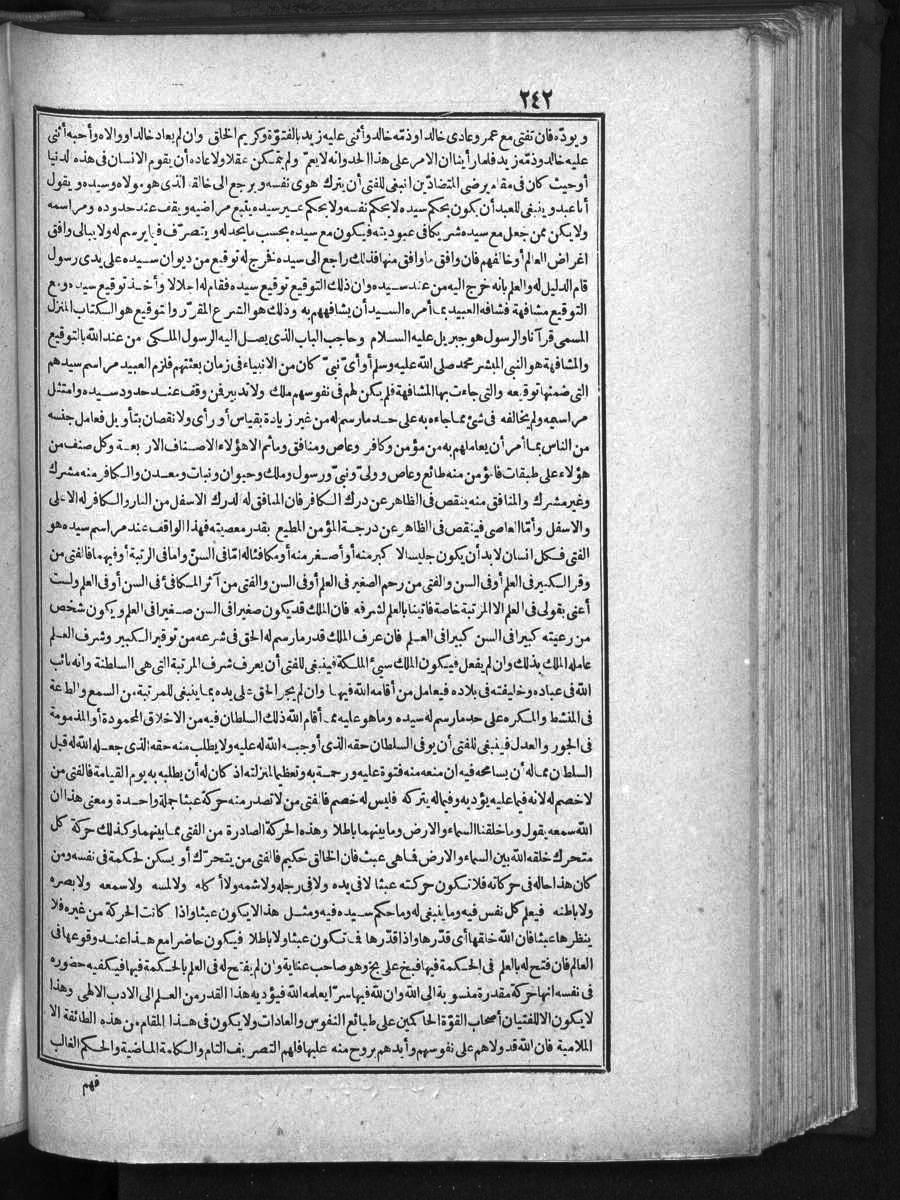 ٢٤٢
ويوده فان تفتى مع عمر وعادى خالدا وذمّه خالد وأثنى عليه زيد بالفتوّة وكريم الخلق وان لم يعاد خالدا ووالاه وأحبه أثنى
عليه خالد وذمّه زيد فلما رأينا ان الامر على هذا الحد وانه لا يعم ولم يتمكن عقلا ولا عادة أن يقوم الانسان فى هذه الدنيا
أو حيث كان فى مقام يرضى المتضادّين انبغى للفتى أن يترك هوى نفسه ويرجع الى خالقه الذى هو مولاه وسيده ويقول
أنا عبد وينبغى للعبد أن يكون بحكم سيده لا بحكم نفسه ولا بحكم غير سيده يتبع مراضيه ويقف عند حدوده ومراسمه
ولا يكن ممن جعل مع سيده شريكا فى عبوديته فيكون مع سيده بحسب ما يحدّ له ويتصرّف فيما يرسم له ولا يبالى وافق
اغراض العالم أو خالفهم فان وافق ما وافق منها فذلك راجع الى سيده نخرج له توقيع من ديوان سيده على يدى رسول
قام الدليل له والعلم بأنه خرج اليه من عند سيده وان ذلك التوقيع توقيع سيده فقام له اجلالا وأخذ توقيع سيده ومع
التوقيع مشافهة فشافه العبيد بما أمره السيد أن يشافههم به وذلك هو الشرع المقرّر والتوقيع هو الكتاب المنزل
المسمى قرآنا والرسول هو جبريل عليه السلام وحاجب الباب الذى يصل اليه الرسول الملكى من عند الله بالتوقيع
والمشافهة هو النبى المبشر محمد صلى الله عليه وسلم أو أىّ نبىّ كان من الانبياء فى زمان بعثتهم فلزم العبيد مراسم سيدهم
التى ضمنها توقيعه والتى جاءت بها المشافهة فلم يكن لهم فى نفوسهم ملك ولا تدبير فن وقف عند حدود سيده وامتثل
مراسيمه ولم يخالفه فى شئ مما جاءه به على حد ما رسم له من غير زيادة بقياس أو رأى ولا نقصان بتأويل فعامل جنسه
من الناس بما أمر أن يعاملهم به من مؤمن وكافر وعاص ومنافق وما ثم الا هؤلاء الاصناف الاربعة وكل صنف من
هؤلاء على طبقات فالمؤمن منه طائع وعاص وولىّ ونبىّ ورسول وملك وحيوان ونبات ومعدن والكافر منه مشرك
وغير مشرك والمنافق منه ينقص فى الظاهر عن درك الكافر فان المنافق له الدرك الاسفل من النار والكافر له الاعلى
والاسفل وأمّا العاصى فينقص فى الظاهر عن درجة المؤمن المطيع بقدر معصيته فهذا الواقف عند مراسم سيده هو
الفتى فكل انسان لابد أن يكون جليسا لا كبر منه أو أصغر منه أو مكافئا له امّا فى السنّ واما فى الرتبة أو فيهما فالفتى من
وقر الكبير فى العلم أو فى السن والفتى من رحم الصغير فى العلم أو فى السن والفتى من آثر المكافئ فى السن أو فى العلم ولست
أعنى بقولى فى العلم الا المرتبة خاصة فأتينا بالعلم لشرفه فان الملك قد يكون صغيرا فى السن صغيرا فى العلم ويكون شخص
من رعيته كبيرا فى السن كبيرا فى العلم فان عرف الملك قدر ما رسم له الحق فى شرعه من توقير الكبير وشرف العلم
عامله الملك بذلك وان لم يفعل فيكون الملك سيئ الملكة فينبغى للفتى أن يعرف شرف المرتبة التى هى السلطنة وانه نائب
الله فى عباده وخليفته فى بلاده فيعامل من أقامه الله فيها وان لم يجر الحق على يده بما ينبغى للمرتبة من السمع والطاعة
فى المنشط والمكره على حد ما رسم له سيده وما هو عليه مما أقام الله ذلك السلطان فيه من الاخلاق المحمودة أو المذمومة
فى الجور والعدل فينبغى للفتى أن يوفى السلطان حقه الذى أوجبه الله له عليه ولا يطلب منه حقه الذى جعله الله له قبل
السلطان مما له أن يسامحه فيه ان منعه منه فتوة عليه ورحمة به وتعظيما لمنزلته اذ كان له أن يطلبه به يوم القيامة فالفتى من
لا خصم له لانه فيما عليه يؤديه وفيما له يتركه فليس له خصم فالفتى من لا تصدر منه حركة عبثا جملة واحدة ومعنى هذا ان
الله سمعه يقول وما خلقنا السماء والارض وما بينهما باطلا وهذه الحركة الصادرة من الفتى مما بينهما وكذلك حركة كل
متحرك خلقه الله بين السماء والارض فما هى عبث فان الخالق حكيم فالفتى من يتحرّك أو يسكن لحكمة فى نفسه ومن
كان هذا حاله فى حركاته فلا تكون حركته عبثا لا فى يده ولا فى رجله ولا شمه ولا أكله ولا لمسه ولا سمعه ولا بصره
ولا باطنه فيعلم كل نفس فيه وما ينبغى له وما حكم سيده فيه ومثل هذا لا يكون عبثا واذا كانت الحركة من غيره فلا
ينظرها عبثا فان الله خلقها أى قدّرها واذا قدّرها فما تكون عبثا ولا باطلا فيكون حاضرا مع هذا عند وقوعها فى
العالم فان فتح له بالعلم فى الحكمة فيها فبخ على بخ وهو صاحب عناية وان لم يفتح له فى العلم بالحكمة فيها فيكفيه حضوره
فى نفسه انها حركة مقدرة منسوبة الى الله وان لله فيها سرّا يعلمه الله فيؤديه هذا القدر من العلم الى الادب الالهى وهذا
لا يكون الا للفتيان أصحاب القوّة الحاكمين على طبائع النفوس والعادات ولا يكون فى هذا المقام من هذه الطائفة الا
الملامية فان الله قد ولاهم على نفوسهم وأيدهم بروح منه عليها فلهم التصريف التام والكلمة الماضية والحكم الغالب
فهم